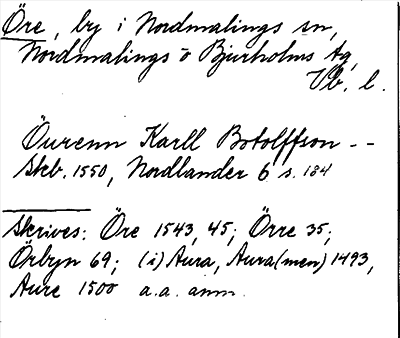 Öre, by i Nordmalings sn,
Nordmalings o Bjurholms tg,
Vb. l.
Öurenn Karll Botolffson - -
Skb. 1550, Nordlander 6 s. 184
Skrives: Öre 1543, 45; Örre 35;
Örbyn 69; (i) Aura, Aura(men) 1493,
Aure 1500 a.a. anm.